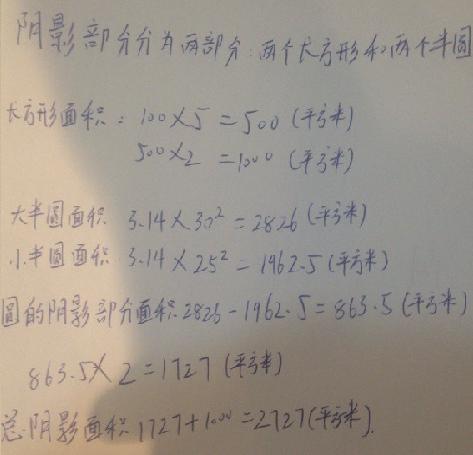 阴影部分分为两部分:两个长方形和两个半圆
长方形面积:100×5=500(平方米)
500×2=1000(平方米)
大半圆面积 3.14×30²=2826(平方米)
小半圆面积 3.14×25²=1962.5(平方米)
圆的阴影部分面积 2826-1962.5=863.5(平方米)
863.5×2=1727(平方米)
总阴影面积 1727+1000=2727(平方米).